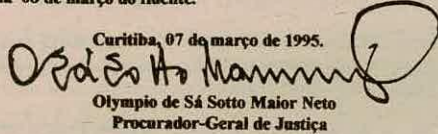 dia 03 de março do fluente.
Curitiba, 07 de março de 1995.
Olympio de Sá Sotto Maior Neto
Procurador-Geral de Justiça